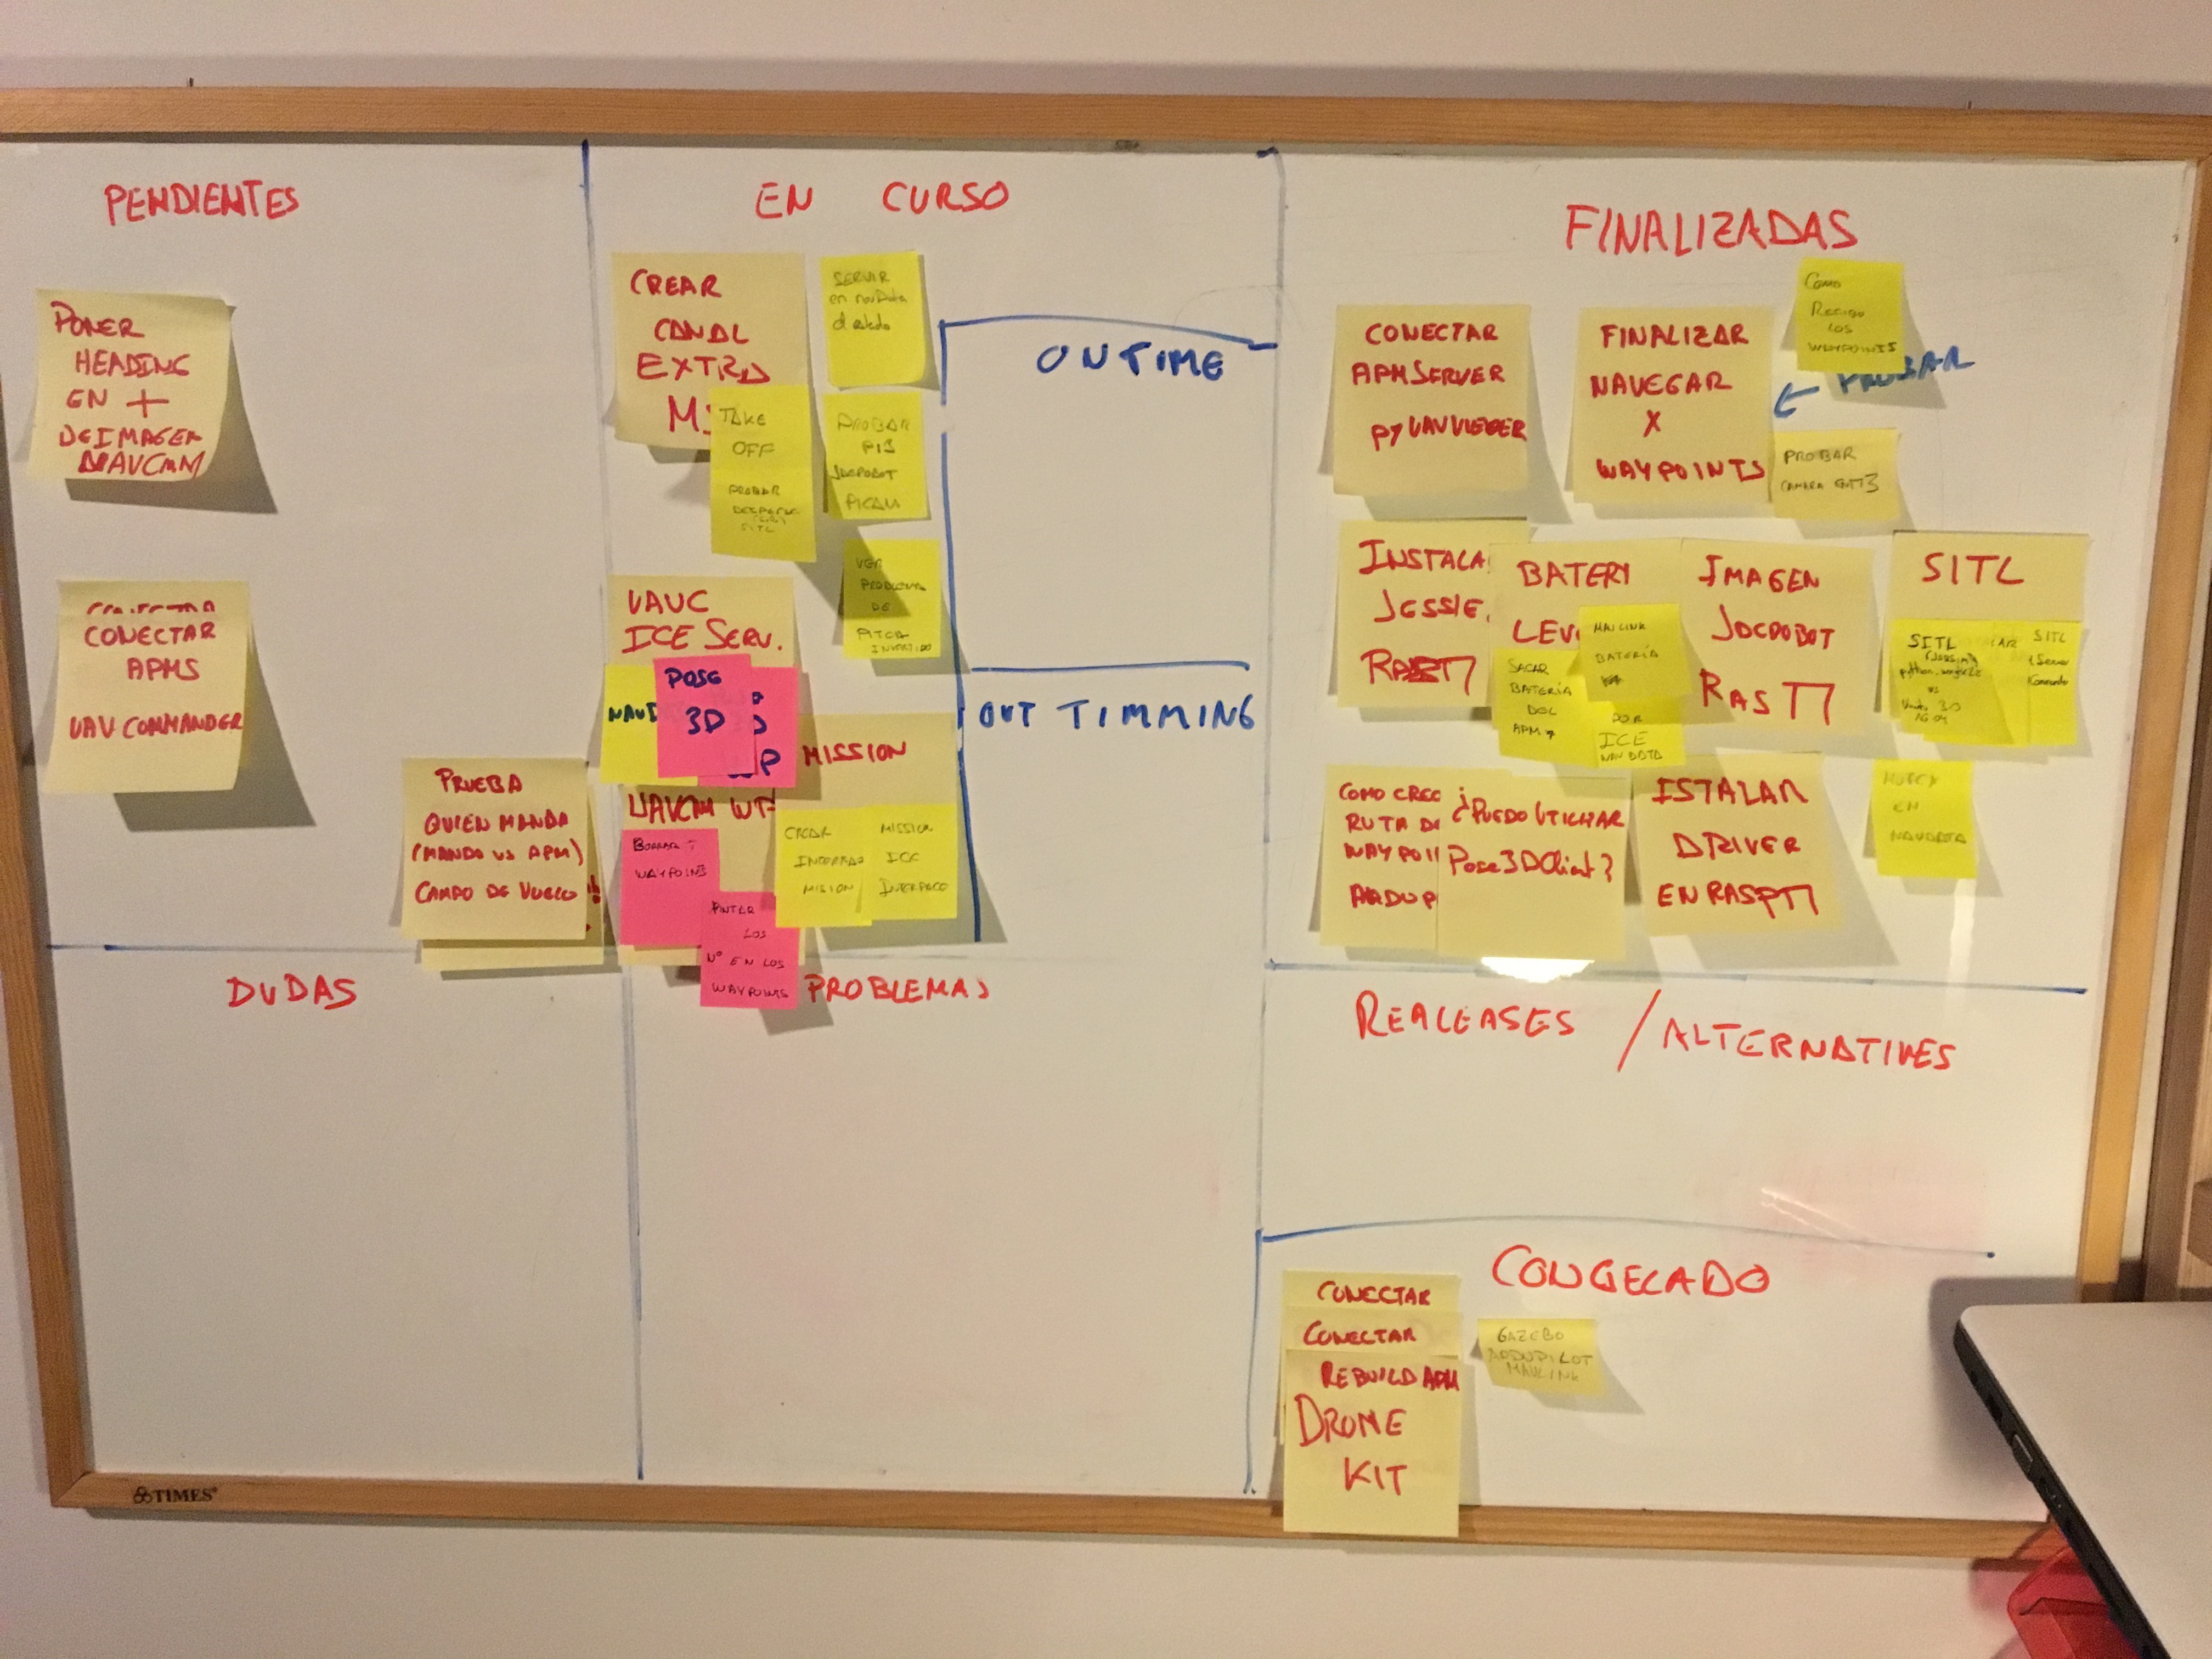 PENDIENTES
PONER
HEADING
EN +
DE IMAGEN
CONECTAR
APMS
UAV COMMANDER
PRUEBA
QUIEN MANDA
(MANDO VS APM)
CAMPO DE VUELO !
EN CURSO
CREAR
CANAL
EXTRA
SERVIR
en navdata
el estado
TAKE
OFF
PROBAR
DESPEGUE
SITL
PROBAR
PI3
JDEROBOT
PICAM
VER
PROBLEMA
DE
PITCH
INVERTIDO
UAVC
ICE SERV.
POSE
3D
MISSION
BORRAR
WAYPOINTS
PINTAR
LOS
Nº EN LOS
WAYPOINTS
CREAR
MISION
MISSION
ICE
INTERFACE
ON TIME
OUT TIMMING
FINALIZADAS
CONECTAR
APMSERVER
FINALIZAR
NAVEGAR
X
WAYPOINTS
COMO
RECIBO
LOS
WAYPOINTS
PROBAR
PROBAR
CAMARA
INSTALA
JESSIE
BATERY
SACAR
BATERÍA
DEL
APM
MAVLINK
BATERÍA
POR
ICE
NAVDATA
IMAGEN
JDEROBOT
SITL
SITL
SITL
COMO CREO
RUTA DE
WAYPOI
ARDUP
¿PUEDO UTILIZAR
Pose3DClient?
ISTALAR
DRIVER
EN
EN
NAVDATA
DUDAS
PROBLEMAS
REALEASES / ALTERNATIVES
CONGELADO
CONECTAR
CONECTAR
REBUILD APM
DRONE
KIT
GAZEBO
ARDUPILOT
MAVLINK
TIMES